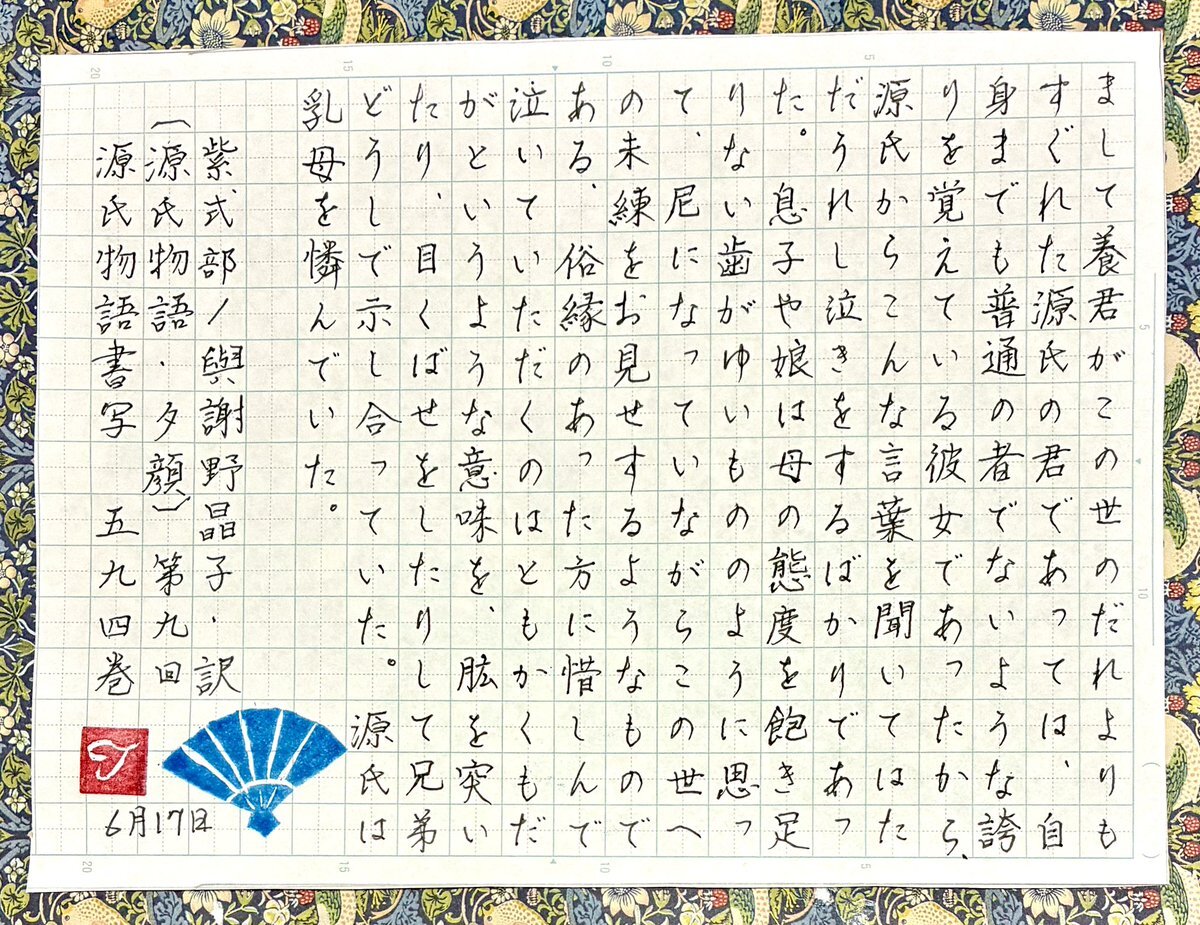 まして養君がこの世のだれよりも
すぐれた源氏の君であっては、自
身までも普通の者でないような誇
りを覚えている彼女であったから、
源氏からこんな言葉を聞いてはた
だうれし泣きをするばかりであっ
た。息子や娘は母の態度を飽き足
りない歯がゆいもののように思っ
て、尼になっていながらこの世へ
の未練をお見せするようなもので
ある、俗縁のあった方に惜しんで
泣いていただくのはともかくもだ
がというような意味を、肱を突い
たり、目くばせをしたりして兄弟
どうしで示し合っていた。源氏は
乳母を憐んでいた。
紫式部/與謝野晶子・訳
(源氏物語・夕顔)第九回
源氏物語書写 五九四巻
6月17日
20
15
10
5
5
10
20
15
10
5